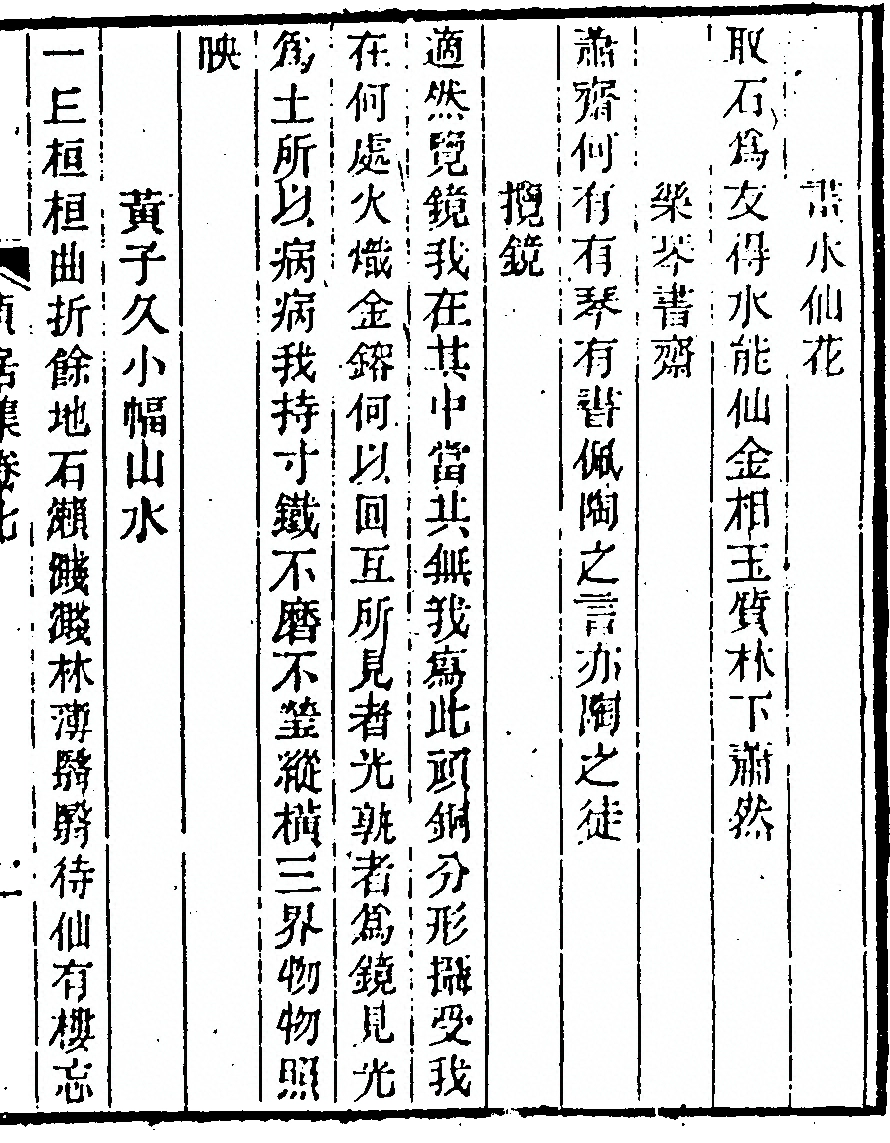 水仙花
取石爲友得水能仙金相玉質林下蕭然
樂琴書齋
蕭齋何有有琴有書佩陶之言亦陶之徒
攬鏡
適然覽鏡我在其中當其無我寫此頑銅分形攝受我
在何處火熾金鎔何以回互所見者光孰者爲鏡見光
爲土所以病病我持寸鐵不磨不瑩縱橫三界物物照
映
黃子久小幅山水
一丘桓桓曲折餘地石瀨濺濺林薄翳翳待仙有樓忘
貞居集卷七